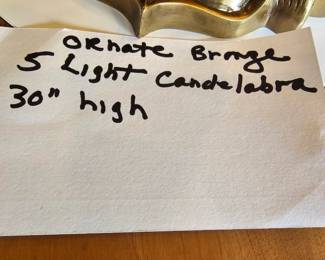 Ornate Bronze
5 Light Candelabra
30" high